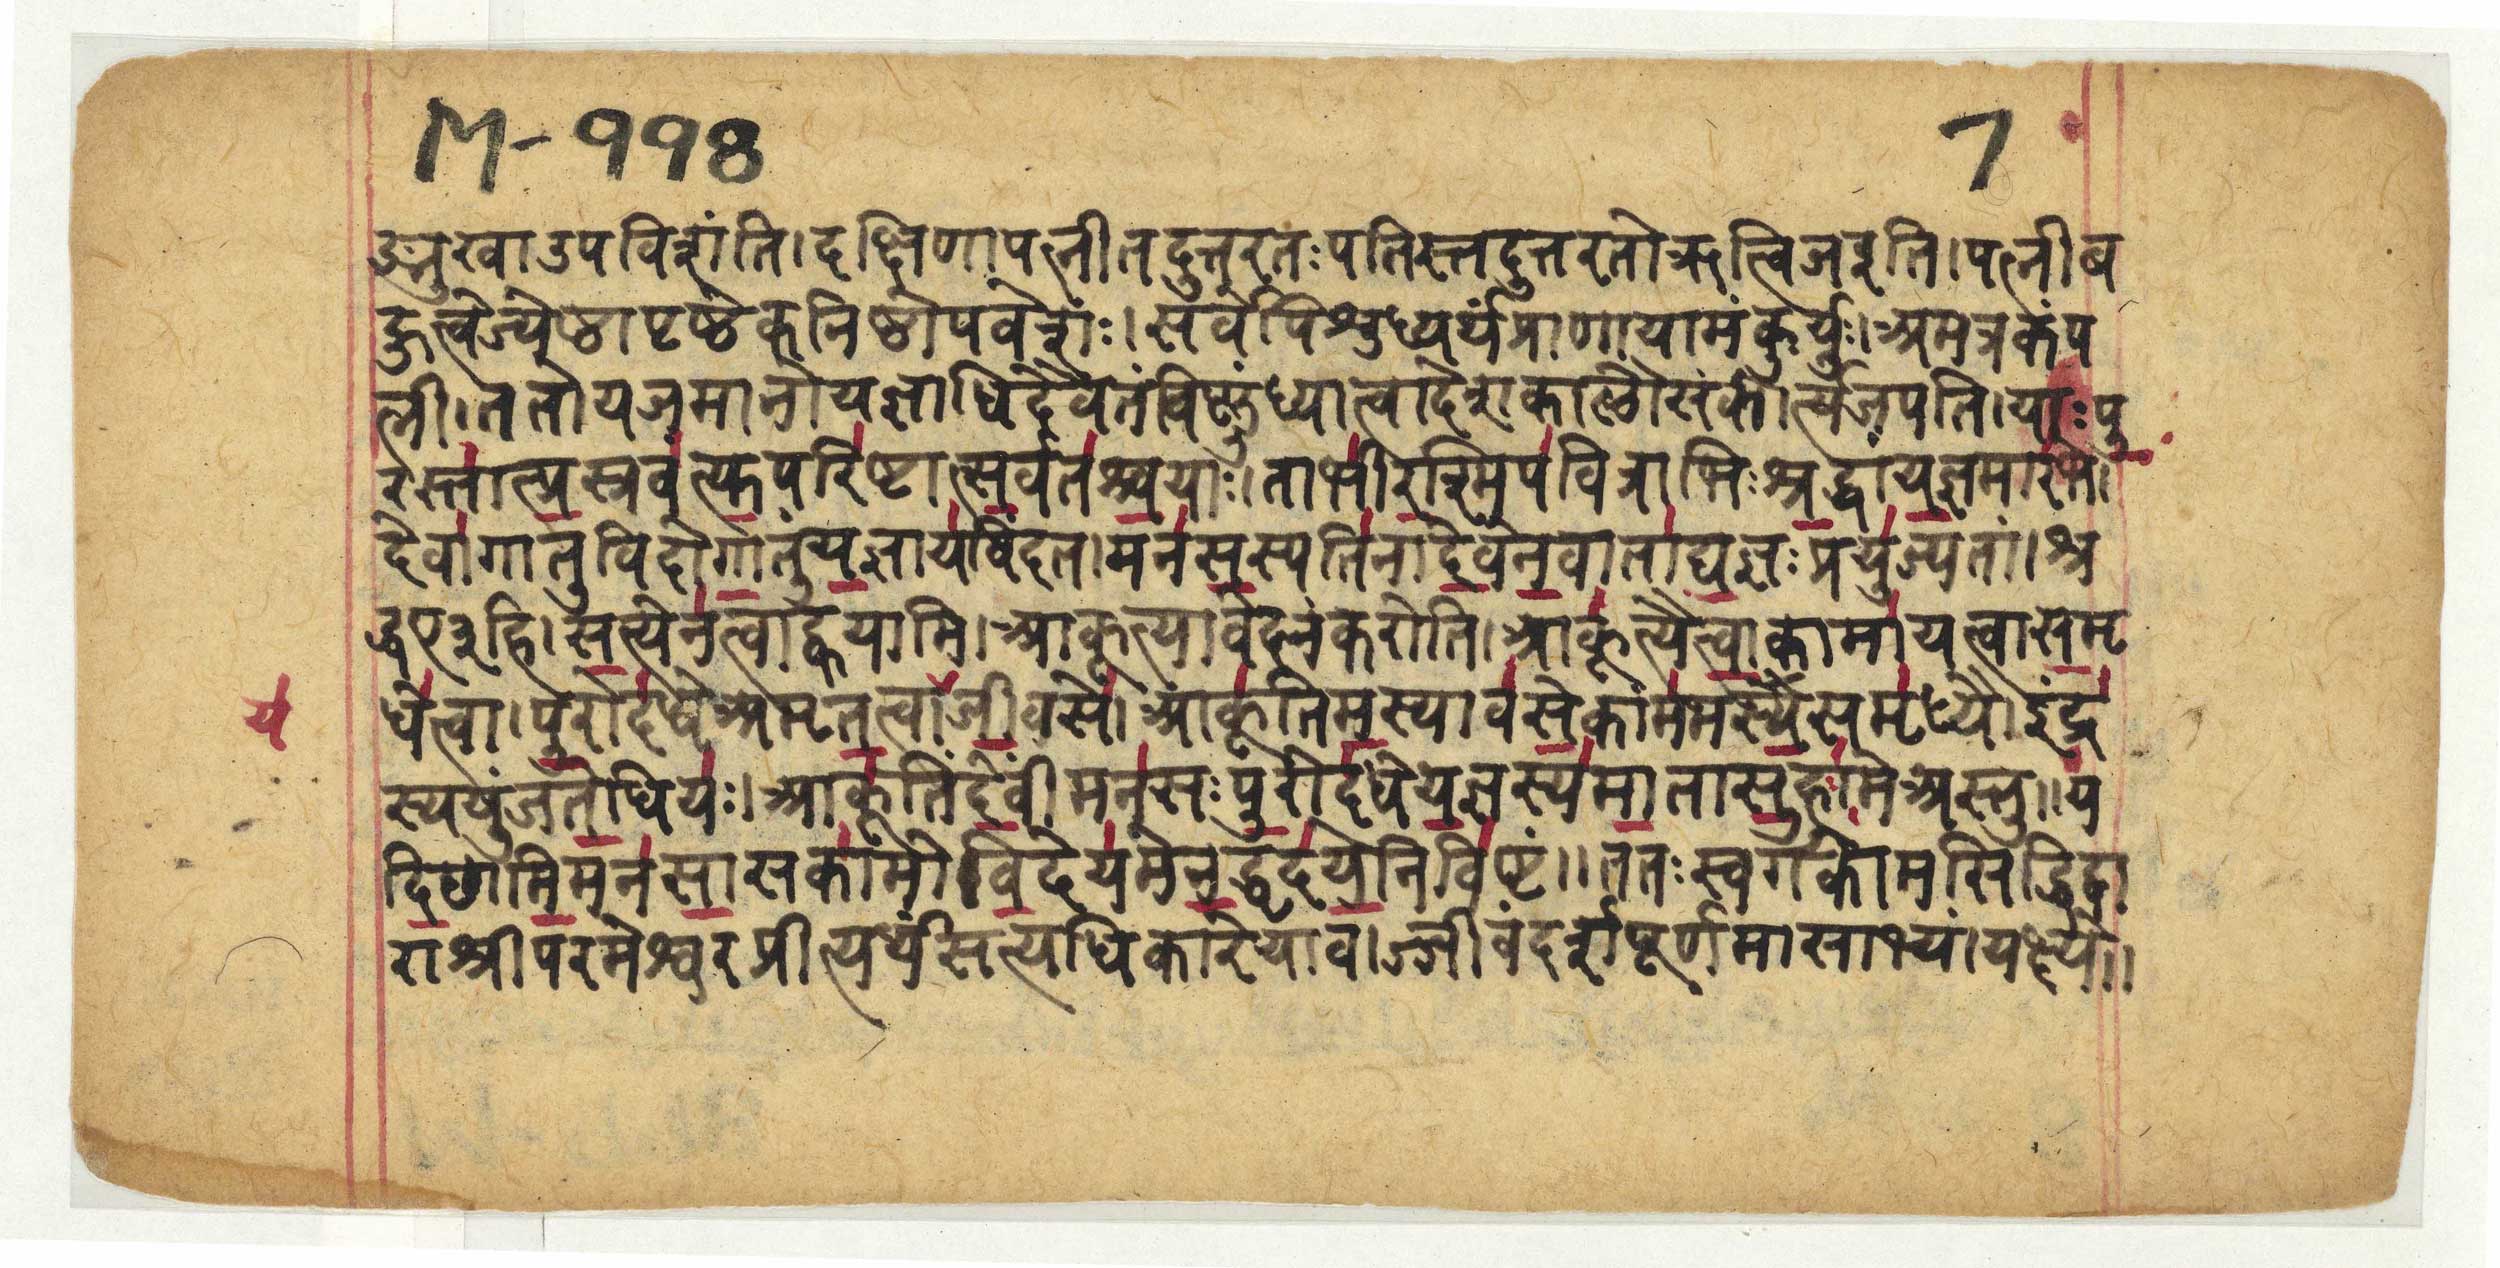 M-११४ 7
ङ्मुखाउपविशंति।दक्षिणापत्नीतदुत्तरतःपतिस्तदुत्तरतोऋत्विजइति।पत्नीब
हुत्वेज्येष्ठापृष्ठेकनिष्ठोपवेशः।सर्वेपिशुध्यर्थंप्राणायामंकुर्युः।अमंत्रकंप
त्नी।ततोयजमानोयज्ञाधिदैवतंविष्णुंध्यात्वादेशकालौसंकीर्त्यजपति।याःपु
रस्तात्प्रस्रवंत्युपरिष्टात्सर्वतश्चयाः।ताभीरश्मिपवित्राभिःश्रद्धांयज्ञमारभे।
देवागातुविदोगातुंयज्ञायविंदत।मनसस्पतिनादेवेनवाताद्यज्ञःप्रयुज्यतां।श्र
द्धए३हि।सत्येनत्वाह्वयामि।आकूत्यावेदनंकरोति।आकूत्यैत्वाकामायत्वासमृ
धेत्वा।पुरोदधेअमृतत्वाजीवसे।आकूतिमस्यावसेकाममस्यैसमृध्यै।इंद्र
य
स्ययुंजतेधियः।आकूतिंदेवींमनसःपुरोदधेयज्ञस्यमातासुहवामेअस्तु॥य
दिछामिमनसासकामोविदेयमेनद्धृदयेनिविष्टं॥ततःस्वर्गकामसिद्धिद्वा
राश्रीपरमेश्वरप्रीत्यर्थंसत्यधिकारेयाव।ज्जीवंदर्शपूर्णमासाभ्यां।यक्ष्ये॥